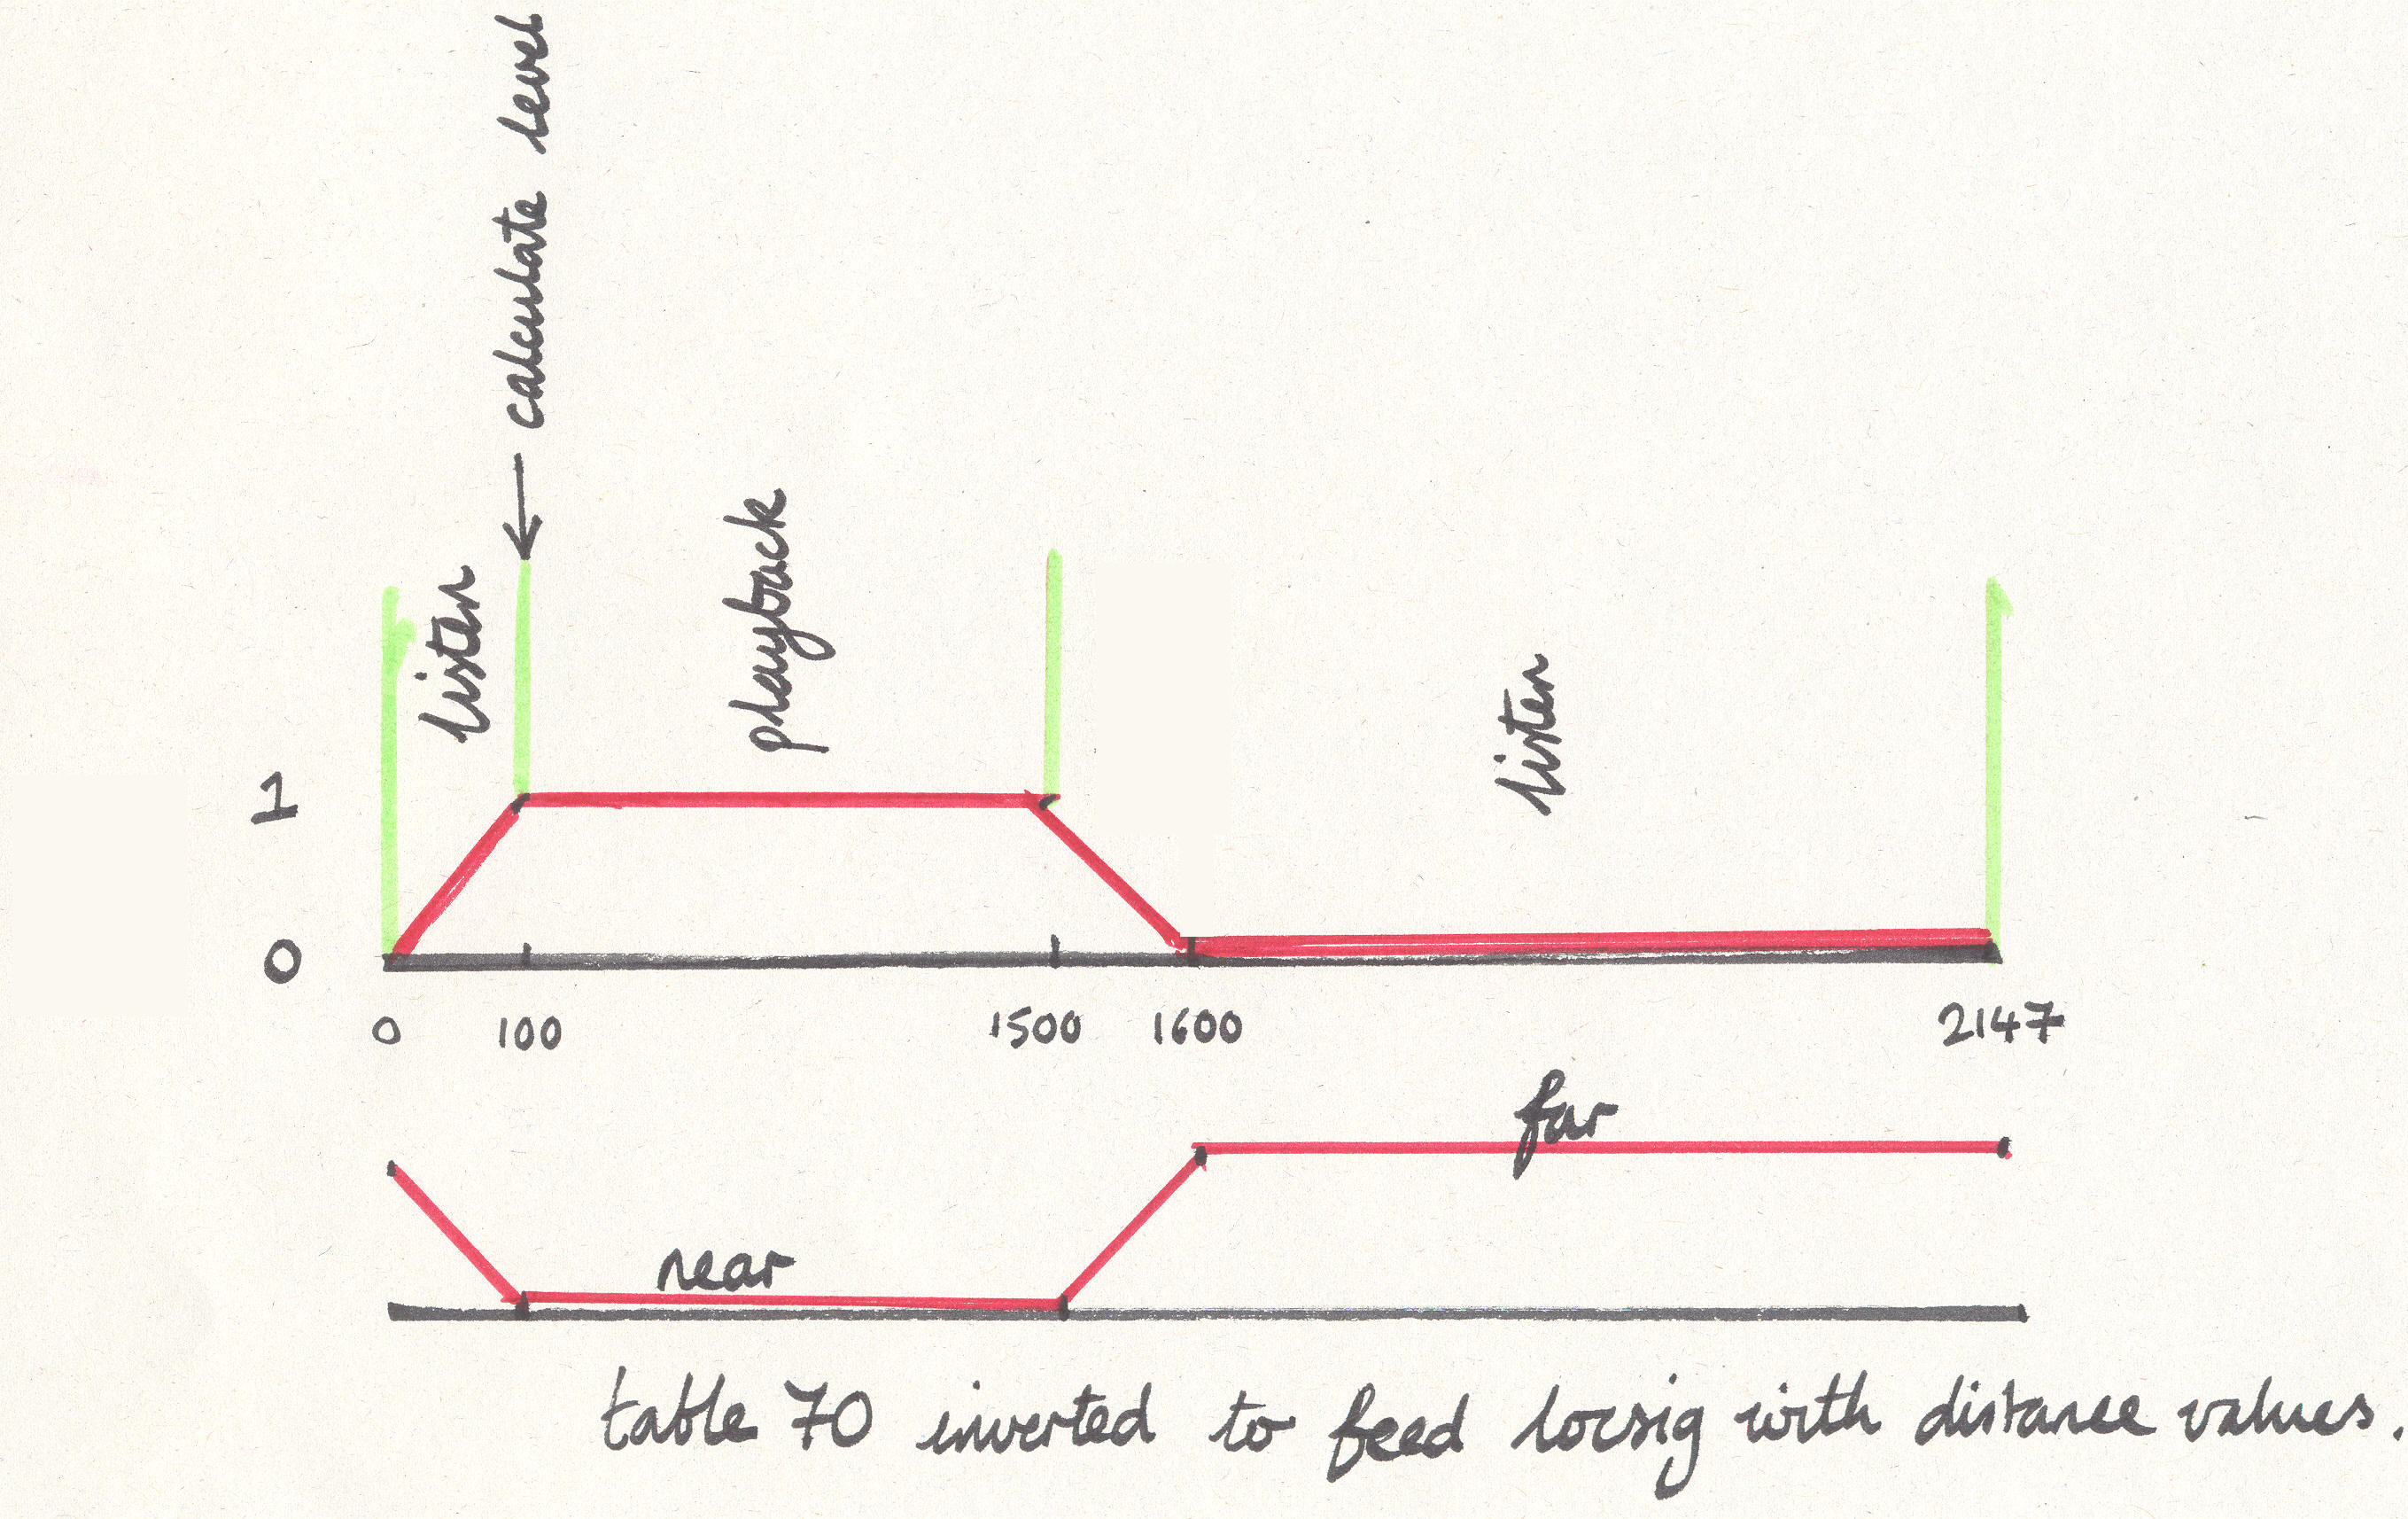 ← calculate level
listen
playback
listen
1
0
0 100 1500 1600 2147
far
near
table 70 inverted to feed locsig with distance values.